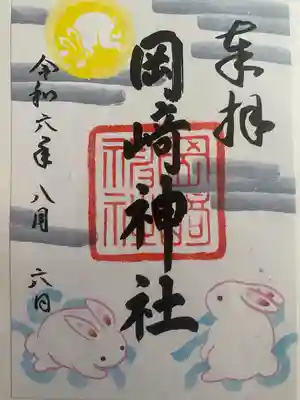 奉拝
岡崎神社
岡崎神社
令和六年八月六日